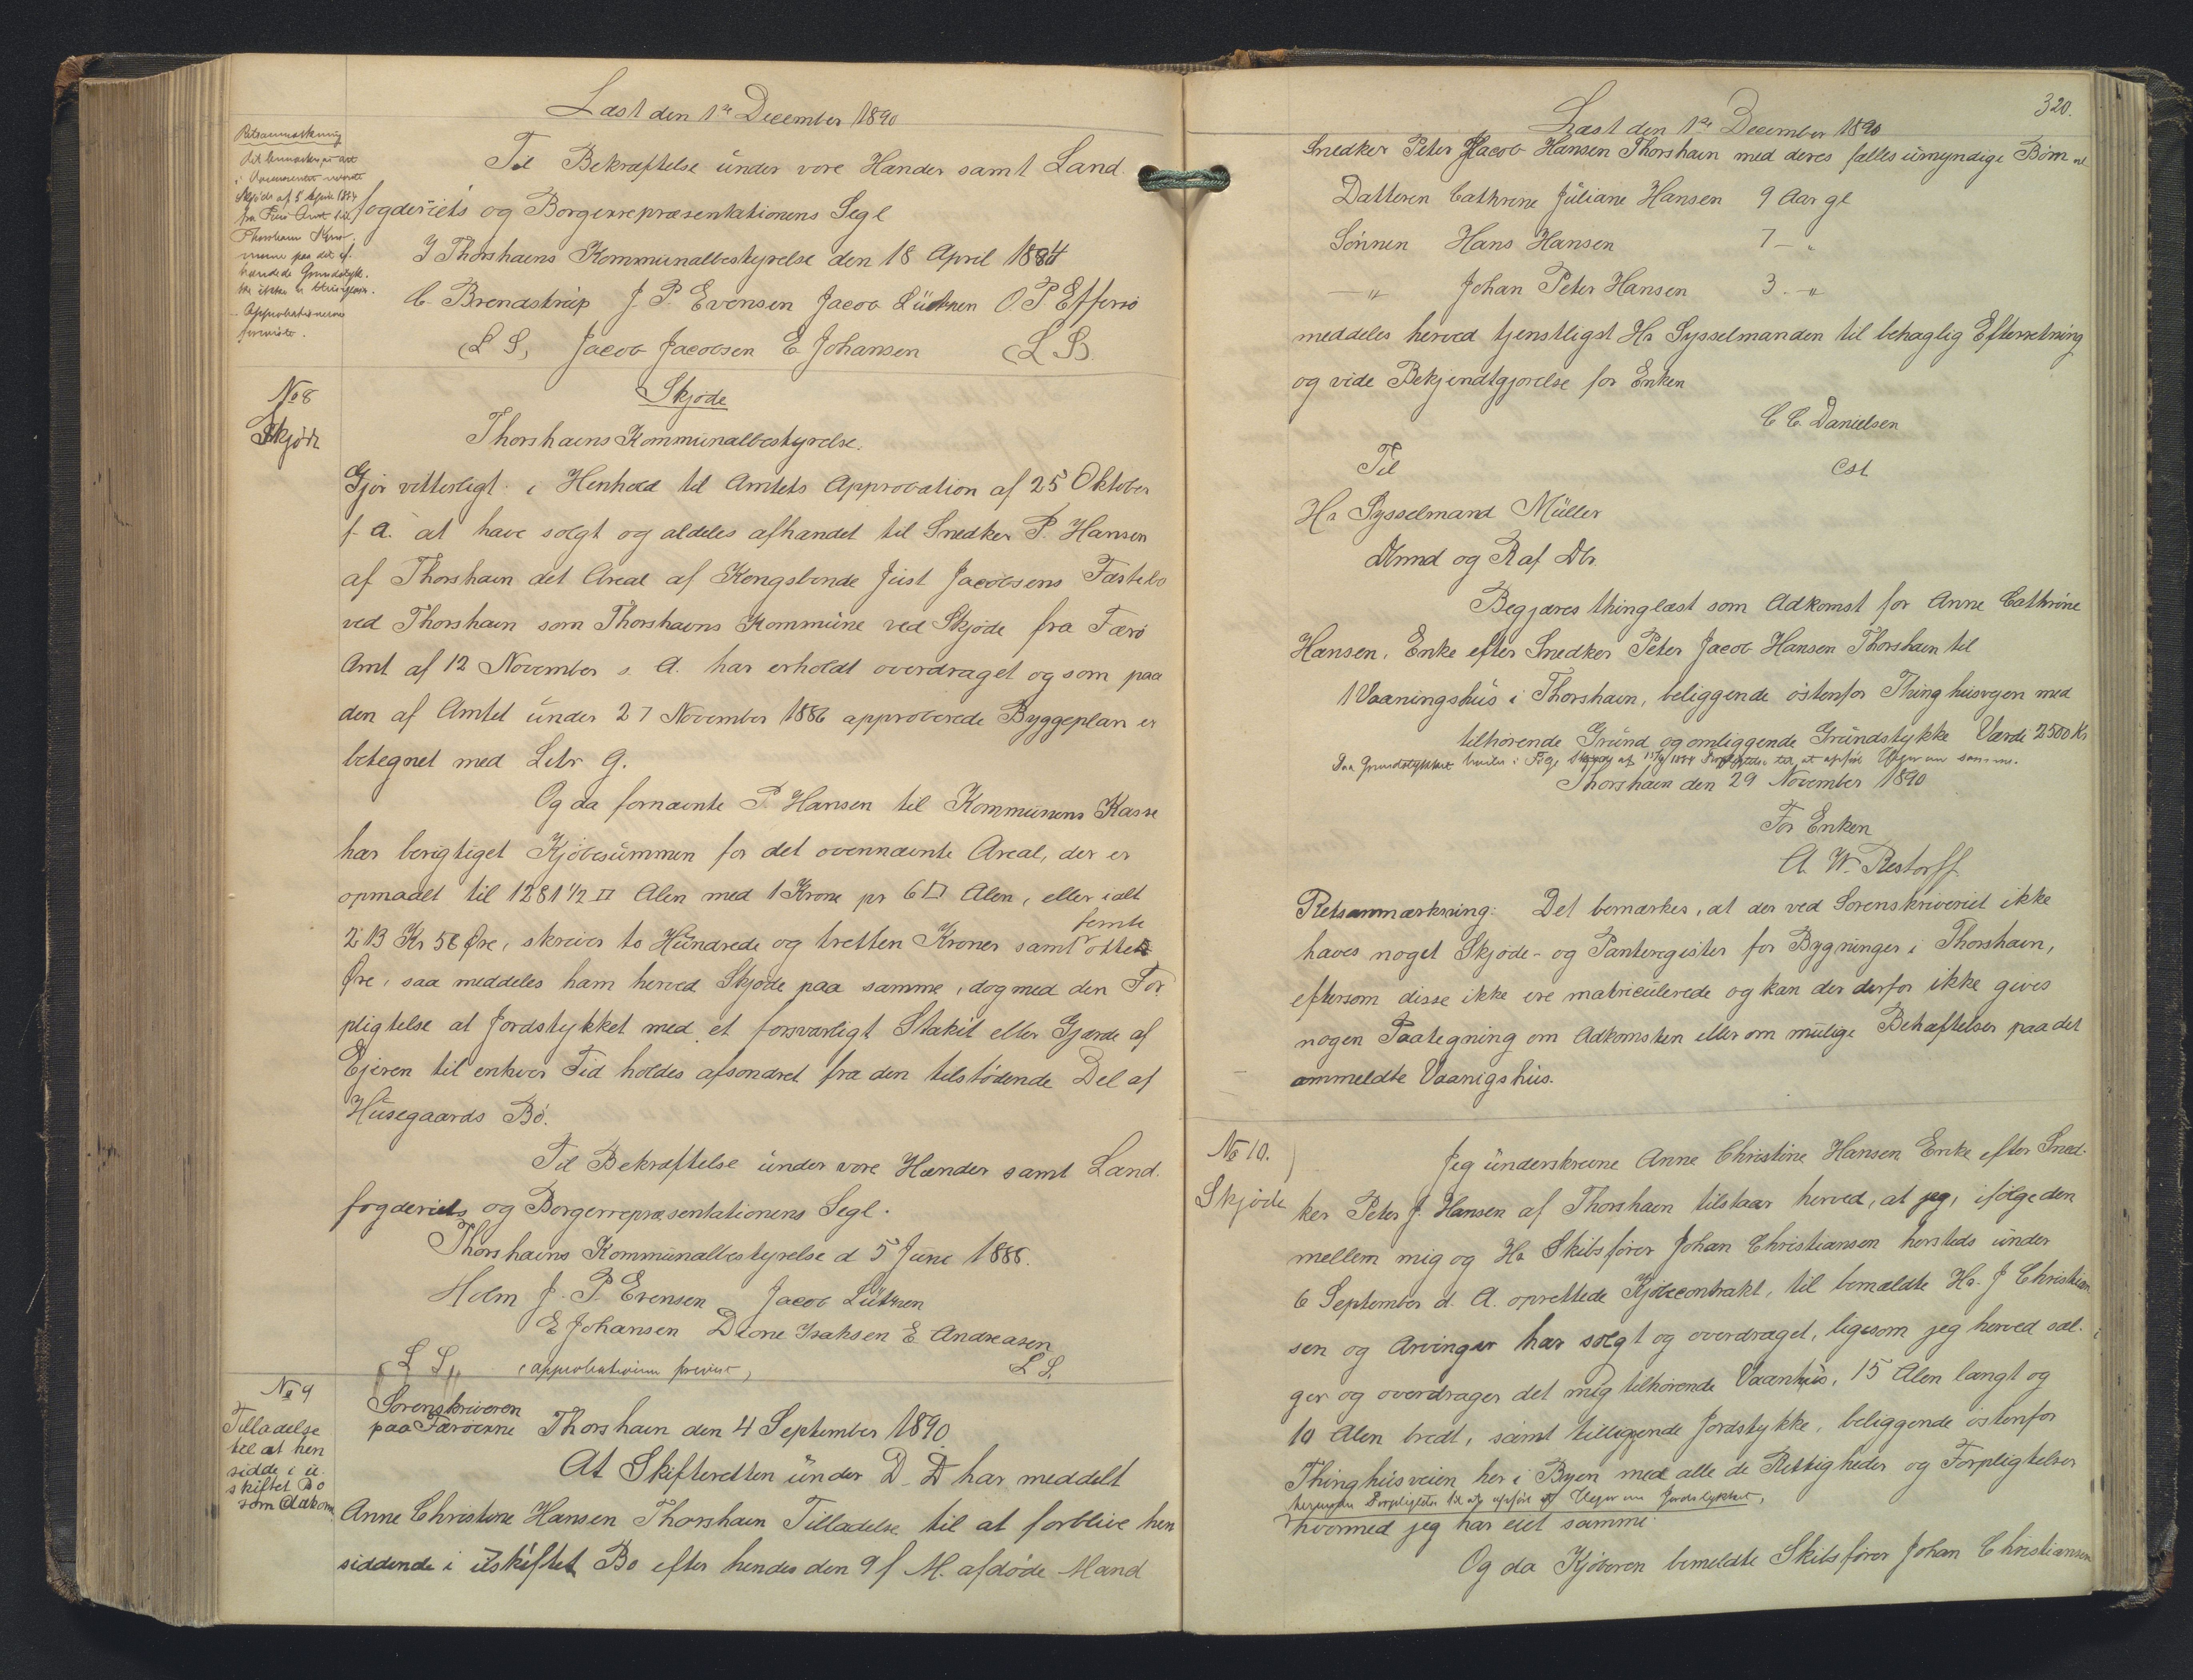 Læst den 1ste December 1890
Retsanmærkning
Det bemærkes at det
i Documentet nævnte
Skjøde af 5 April 1884
fra Færø Amt til
Thorshavn Kom-
mune paa det af-
hændede Grundstyk-
ke ikke er thinglæst.
Approbationerne
forevist.
Til Bekræftelse under vore Hænder samt Land-
fogderiets og Borgerrepræsentationens Segl
I Thorshavns Kommunalbestyrelse den 18 April 1884
C. Brendstrup J. P. Evensen Jacob Lützen O. P. Effersø
(L S) Jacob Jacobsen E. Johansen (L S).
No 8
Skjøde
Skjøde
Thorshavns Kommunalbestyrelse.
Gjør vitterligt: i Henhold til Amtets Approbation af 25 Oktober
f. A. at have solgt og aldeles afhændet til Snedker P. Hansen
af Thorshavn det Areal af Kongsbonde Just Jacobsens Fæstebø
ved Thorshavn som Thorshavns Kommune ved Skjøde fra Færø
Amt af 12 November s. A. har erholdt overdraget og som paa
den af Amtet under 27 November 1886 approberede Byggeplan er
betegnet med Litr G.
Og da fornævnte P. Hansen til Kommunens Kasse
har berigtiget Kjøbesummen for det ovennævnte Areal, der er
opmaalt til 1281 1/2 □ Alen med 1 Krone pr 6 □ Alen, eller ialt
femti
213 Kr 58 Øre, skriver to Hundrede og tretten Kroner samt otte
Øre, saa meddeles ham herved Skjøde paa samme, dog med den For-
pligtelse at Jordstykket med et forsvarligt Stakit eller Gjærde af
Ejeren til enhver Tid holdes afsondret fra den tilstødende Del af
Husegaards Bø.
Til Bekræftelse under vore Hænder samt Land-
fogderiets og Borgerrepræsentationens Segl.
Thorshavns Kommunalbestyrelse d 5 Juni 1888.
Holm J. P. Evensen Jacob Lützen
E Johansen Dione Isaksen E. Andreasen
(L S) (approbationen forevist) L S.
No 9
Tilladelse
til at hen
sidde i u-
skiftet Bo
som Adkomst
Sorenskriveren
paa Færøerne Thorshavn den 4 September 1890.
At Skifteretten under D. D. har meddelt
Anne Christine Hansen Thorshavn Tilladelse til at forblive hen
siddende i uskiftet Bo efter hendes den 9 f. M. afdøde Mand
320.
Læst den 1ste December 1890
Snedker Peter Jacob Hansen Thorshavn med deres fælles umyndige Børn
Datteren Cathrine Juliane Hansen 9 Aar gl
Sønnen Hans Hansen 7 – "
– " Johan Peter Hansen 3. – "
meddeles herved tjenstligst Hr Sysselmanden til behagelig Efterretning
og vide Bekjendtgjørelse for Enken
C. C. Danielsen
Til cst
Hr Sysselmand Müller
Dbrmd og R af Dbr.
Begjæres thinglæst som Adkomst for Anne Cathrine
Hansen, Enke efter Snedker Peter Jacob Hansen Thorshavn til
1 Vaaningshus i Thorshavn, beliggende østenfor Thinghusvejen med
tilhørende Grund og omliggende Grundstykke Værdi 2500 Kr
Paa Grundstykket hviler i Følge Skjøde af 1884 Forpligtelse til at opføre Hegn om samme.
Thorshavn den 29 November 1890
For Enken
A. W. Restorff
Retsanmærkning: Det bemærkes, at der ved Sorenskriveriet ikke
haves noget Skjøde- og Panteregister for Bygninger i Thorshavn,
eftersom disse ikke ere matriculerede og kan der derfor ikke gives
nogen Paategning om Adkomsten eller om mulige Behæftelser paa det
ommeldte Vaanigshus.
No 10.
Skjøde
Jeg underskrevne Anne Christine Hansen Enke efter Sned-
ker Peter J. Hansen af Thorshavn tilstaar herved, at jeg, ifølge den
mellem mig og Hr Skibsfører Johan Christiansen hersteds under
6 September d. A. oprettede Kjøbecontrakt, til bemældte Hr. J Christian-
sen og Arvinger har solgt og overdraget, ligesom jeg herved sæl-
ger og overdrager det mig tilhørende Vaanhus, 15 Alen langt og
10 Alen bredt, samt tilliggende Jordstykke, beliggende østenfor
Thinghusveien her i Byen med alle de Rettigheder og Forpligtelser
herunder Forpligtelse til at opføre Hegn om Jordstykket,
hvormed jeg har eiet samme.
Og da Kjøberen bemeldte Skibsfører Johan Christiansen